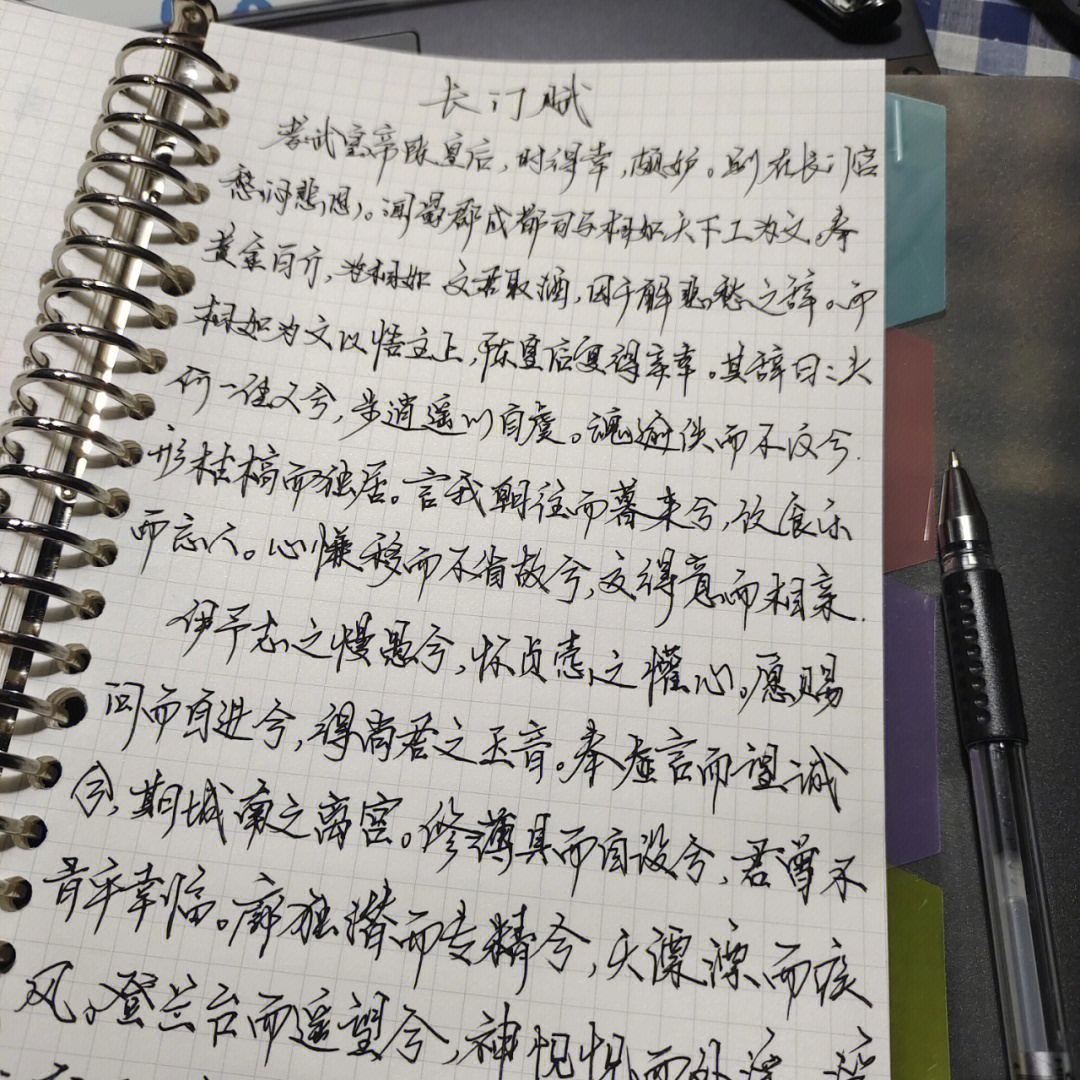 长门赋
孝武皇帝陈皇后,时得幸,颇妒。别在长门宫
愁闷悲思。闻蜀郡成都司马相如天下工为文,奉
黄金百斤,为相如 文君取酒,因于解悲愁之辞。而
相如为文以悟主上,陈皇后复得亲幸。其辞曰:夫
何一佳人兮,步逍遥以自虞。魂逾佚而不反兮.
形枯槁而独居。言我朝往而暮来兮,饮食乐
而忘人。心慊移而不省故兮,交得意而相亲.
伊予志之慢愚兮,怀贞悫之懽心。愿赐
问而自进兮,得尚君之玉音。奉虚言而望诚
兮,期城南之离宫。修薄具而自设兮,君曾不
肯乎幸临。廓独潜而专精兮,天漂漂而疾
风。登兰台而遥望兮,神怳怳而外淫。